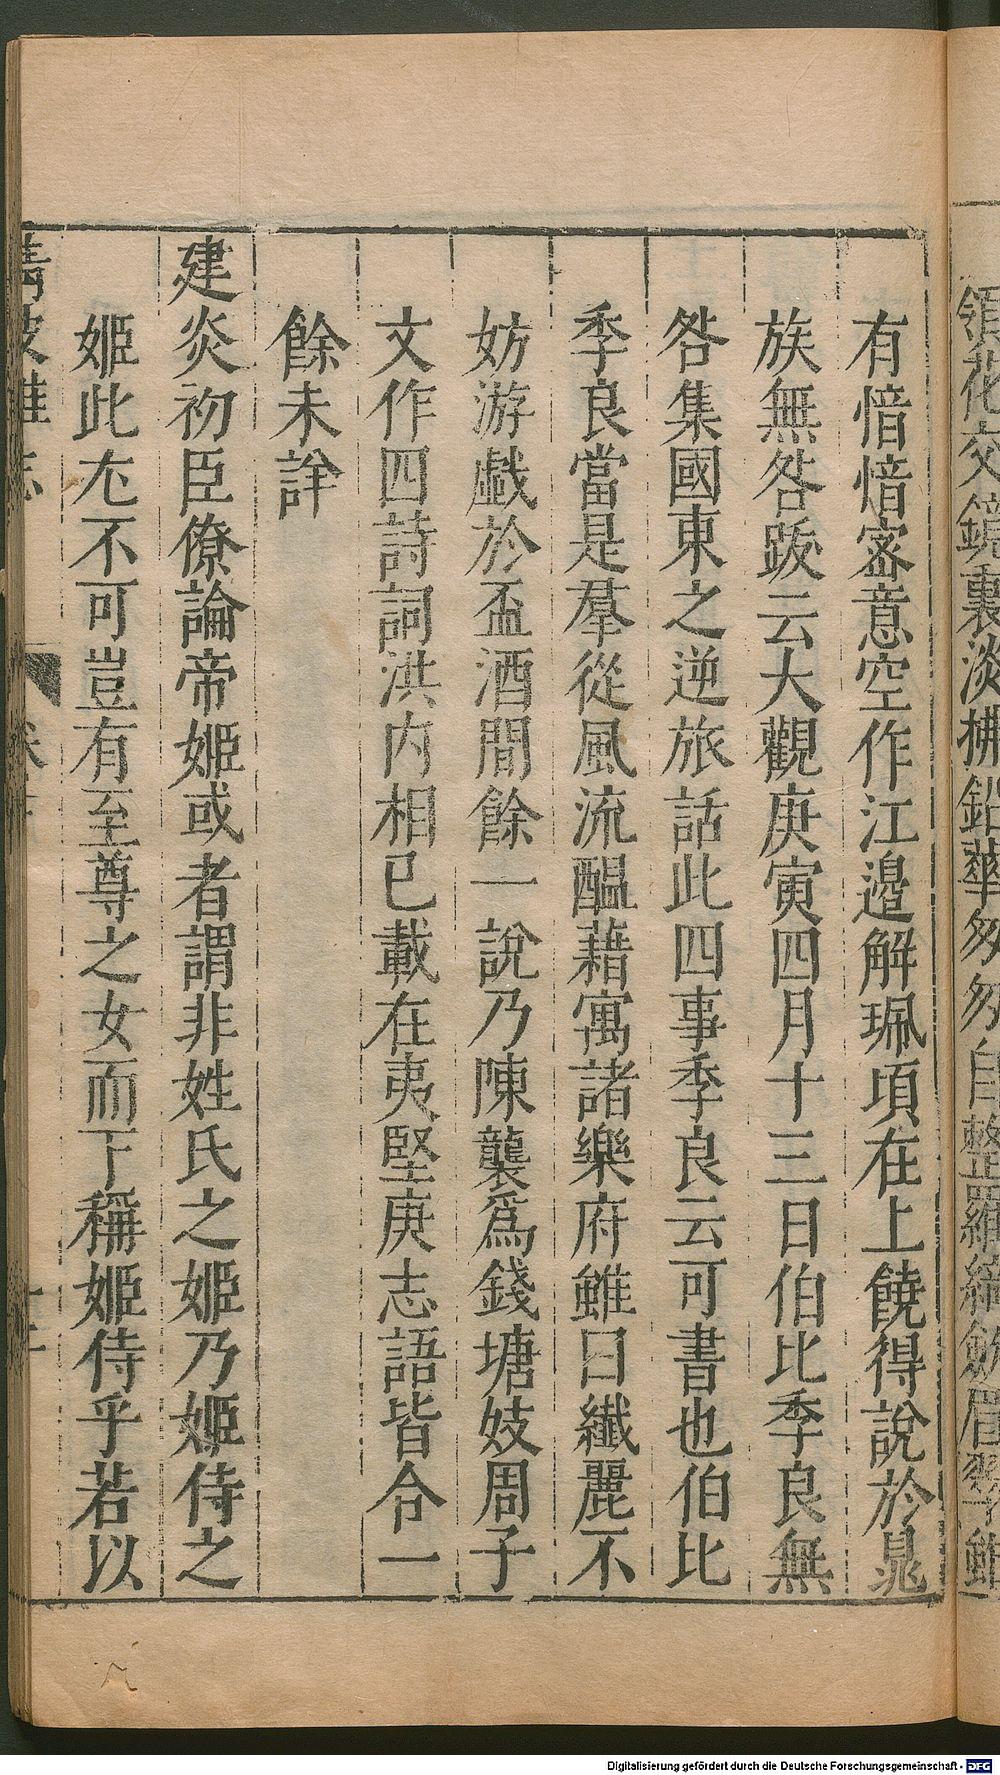 領花交鏡裏淡拂鉛華匆匆自整羅綺斂眉翠雖
有愔愔密意空作江邊解珮頃在上饒得說於晁
族無咎跋云大觀庚寅四月十三日伯比季良無
咎集國東之逆旅話此四事季良云可書也伯比
季良當是羣從風流醖藉寓諸樂府雖曰纖麗不
妨游戲於盃酒間餘一說乃陳襲爲錢塘妓周子
文作四詩詞洪内相已載在夷堅庚志語皆合一
餘未詳
建炎初臣僚論帝姬或者謂非姓氏之姬乃姬侍之
姬此尤不可豈有至尊之女而下稱姬侍乎若以
清波雜志
Digitalisierung gefördert durch die Deutsche Forschungsgemeinschaft - DFG